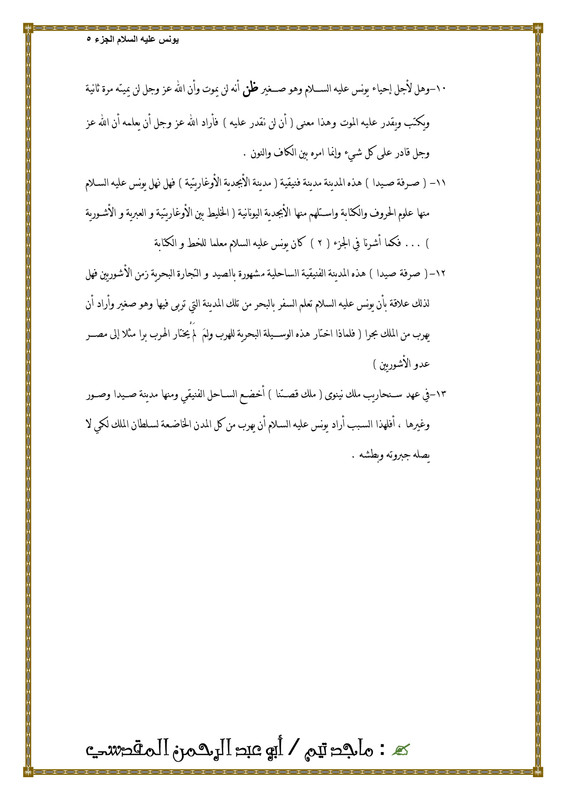 يونس عليه السلام الجزء ٥
١٠-وهل لأجل إحياء يونس عليه السلام وهو صغير ظن أنه لن يموت وأن الله عز وجل لن يميته مرة ثانية
ويكتب ويقدر عليه الموت وهذا معنى ( أن لن نقدر عليه ) فأراد الله عز وجل أن يعلمه أن الله عز
وجل قادر على كل شيء وإنما امره بين الكاف والنون .
١١- ( صرفة صيدا ) هذه المدينة مدينة فنيقية ( مدينة الأبجدية الأوغاريتية ) فهل نهل يونس عليه السلام
منها علوم الحروف والكتابة واستلهم منها الأبجدية اليونانية ( الخليط بين الأوغاريتية و العبرية و الأشورية
) ... فكما أشرنا في الجزء ( ٢ ) كان يونس عليه السلام معلما للخط و الكتابة
١٢-( صرفة صيدا ) هذه المدينة الفنيقية الساحلية مشهورة بالصيد و التجارة البحرية زمن الأشوريين فهل
لذلك علاقة بأن يونس عليه السلام تعلم السفر بالبحر من تلك المدينة التي تربى فيها وهو صغير وأراد أن
يهرب من الملك بحرا ( فلماذا اختار هذه الوسيلة البحرية للهرب ولمَ لمْ يختار الهرب برا مثلا إلى مصر
عدو الأشوريين )
١٣-في عهد سنحاريب ملك نينوى ( ملك قصتنا ) أخضع الساحل الفنيقي ومنها مدينة صيدا وصور
وغيرها ، أفلهذا السبب أراد يونس عليه السلام أن يهرب من كل المدن الخاضعة لسلطان الملك لكي لا
يصله جبروته وبطشه .
✍ : ماجد تيم / أبو عبد الرحمن المقدسي